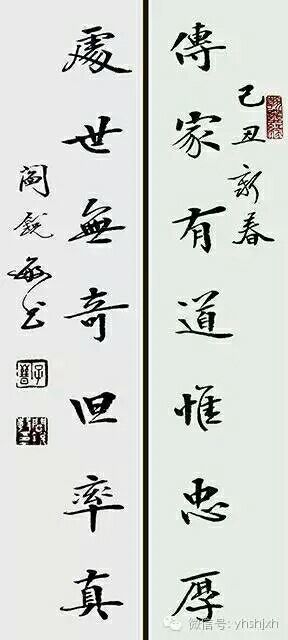 傳家有道惟忠厚
己丑新春
處世無奇但率真
閻銳敏書
微信号: yhshjxh